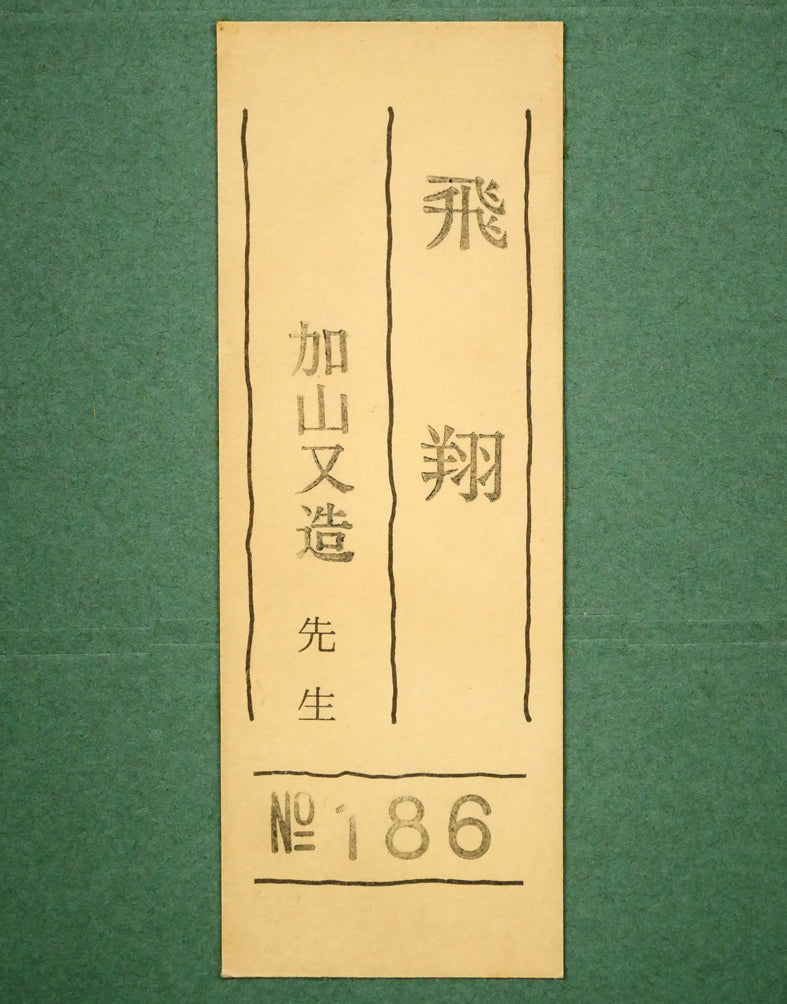 飛翔
加山又造先生
№186